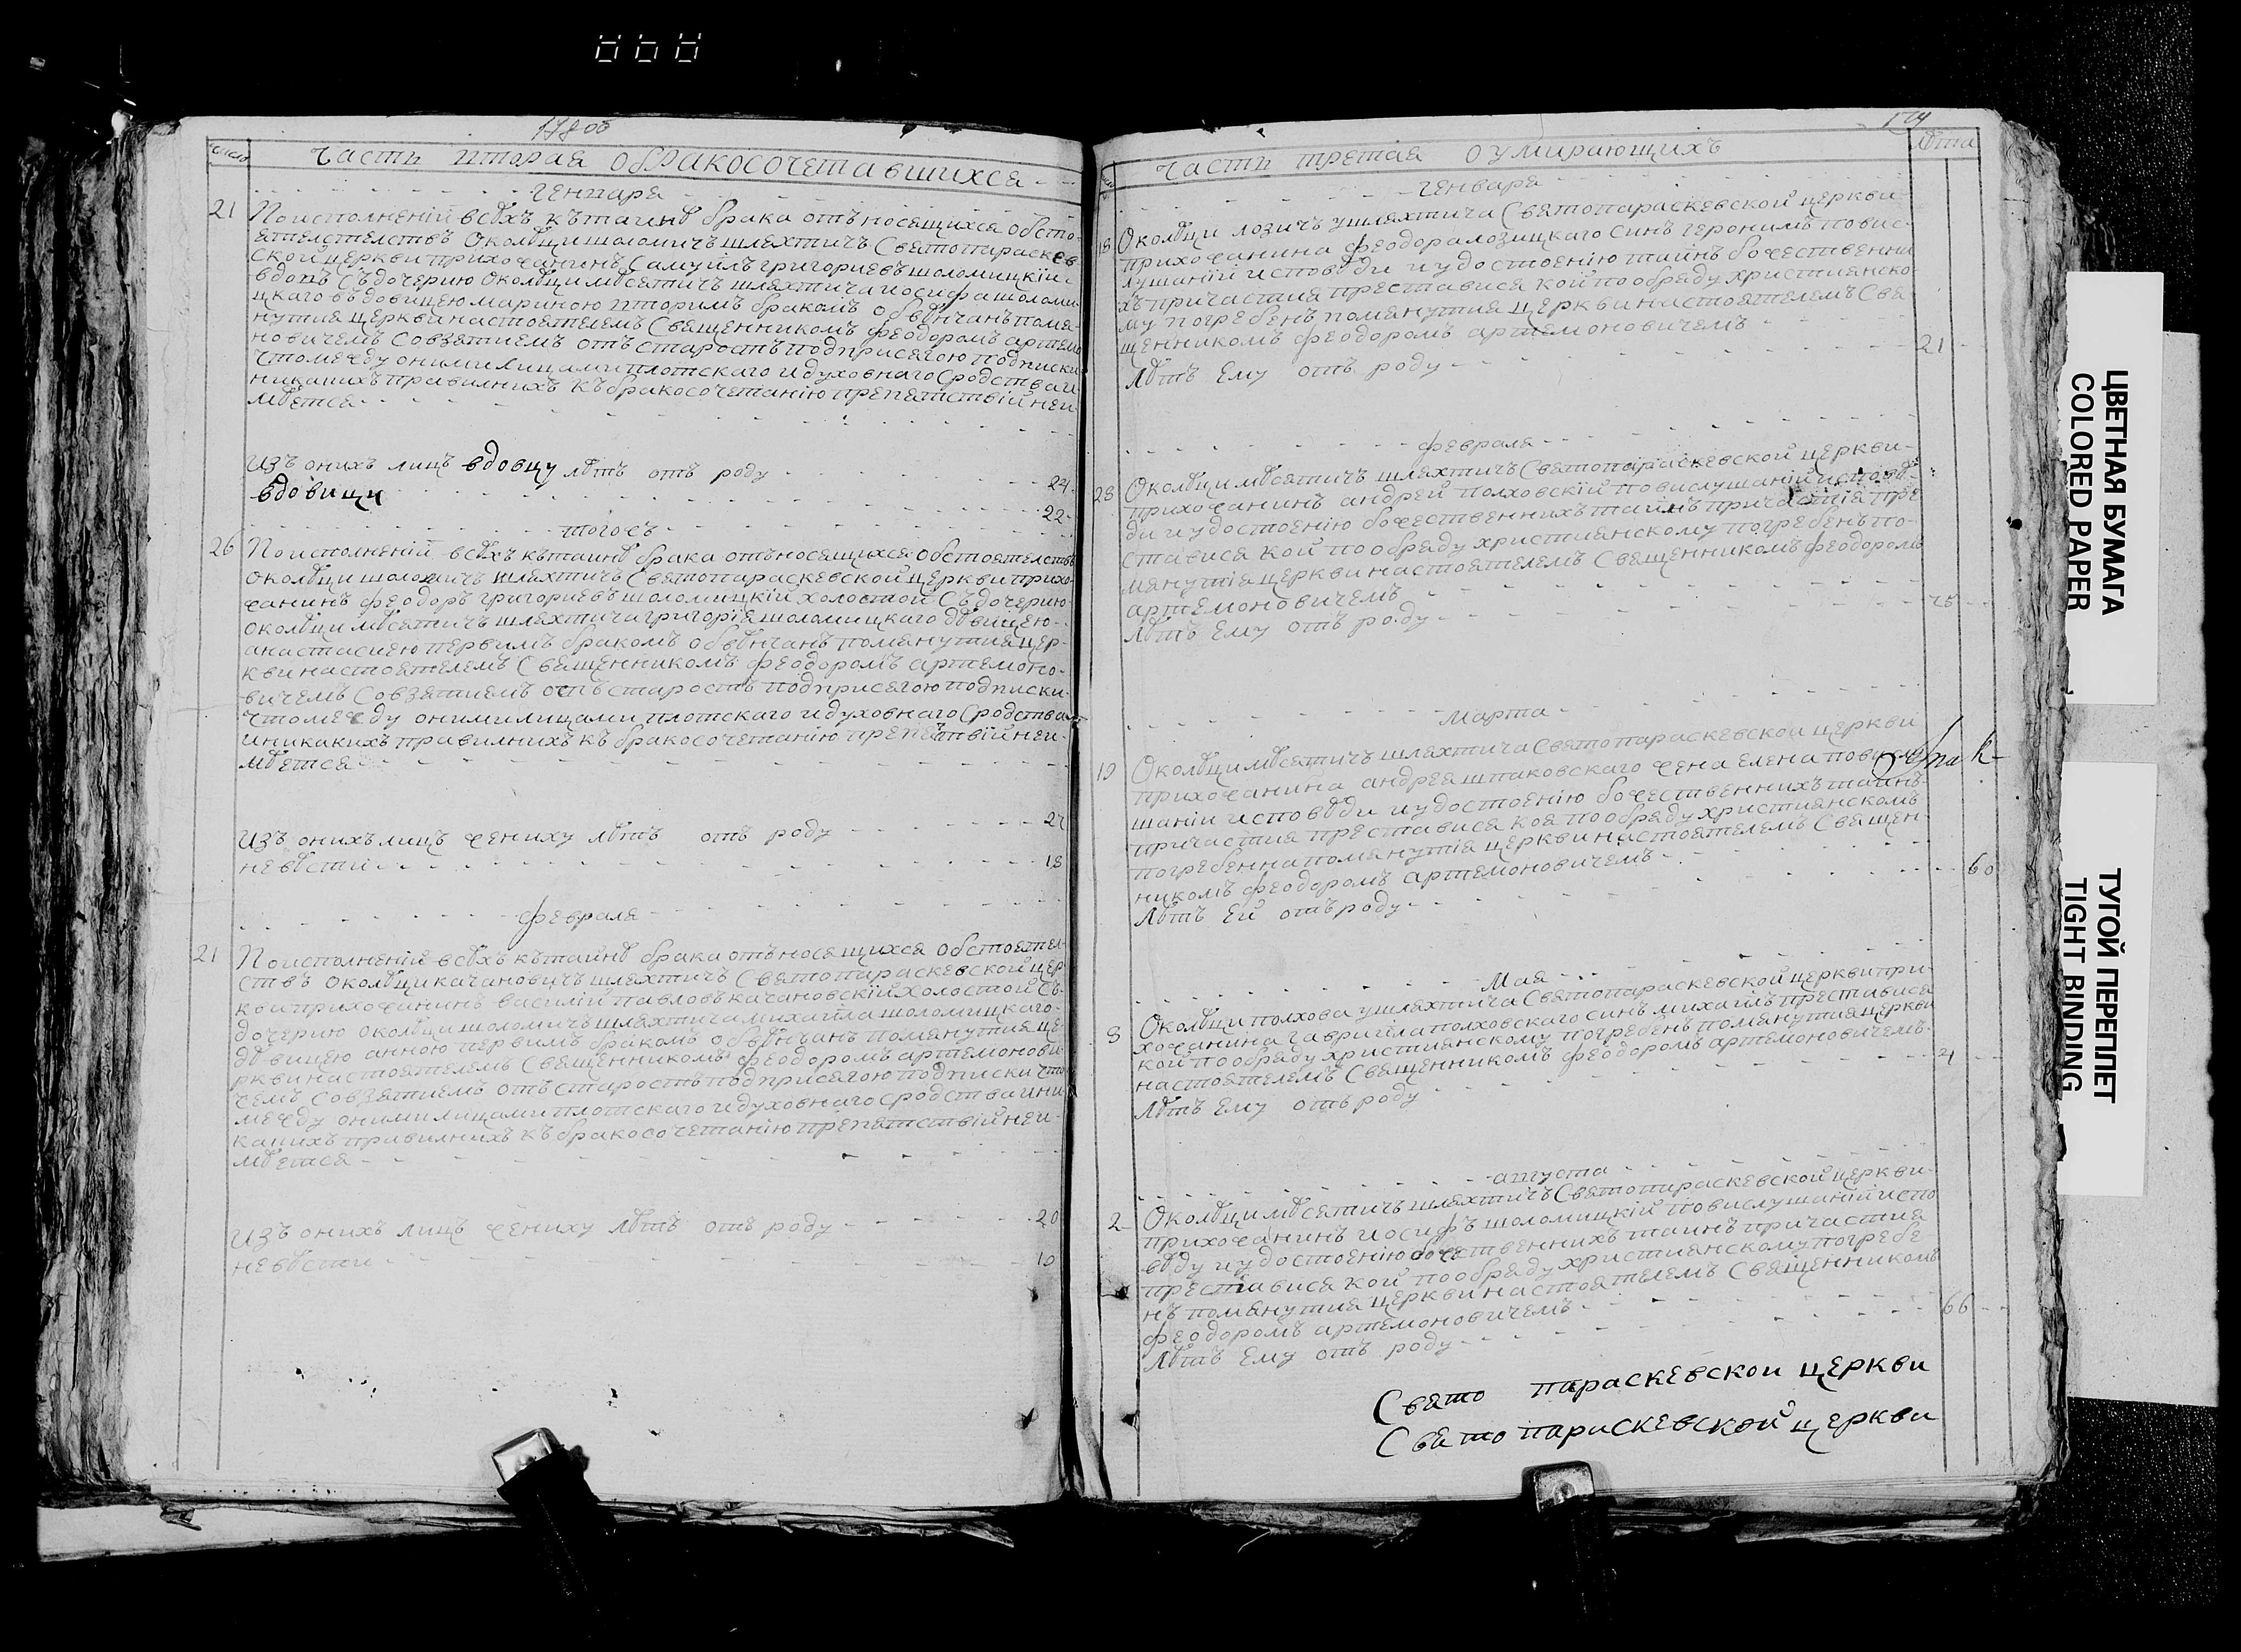 число
Части вторая обракосочетавшихся
генваря
21 Поисполненій всѣхъ къ таинѣ брака отъносящихся обсто-
ятелстелствъ Околѣци шоломичъ шляхтичъ Святопараскев
ской церкви прихожанинъ Самуилъ григориевъ шоломицкій
вдовъ Съдочерию Околѣци мѣсятичъ шляхтича иосифа шоломи
цкаго въдовицею мариною вторимъ бракомъ обвѣнчанъ помя
нутия церкви настоятелемъ Священникомъ феодоромъ артемо
новичемъ Совзятиемъ отъ старостъ подприсягою подписки
что между онимилицами плотскаго идуховнаго Сродства и
никакихъ правилнихъ къ бракосочетанію препятствій неи
мѣется
Изъ онихъ лицъ вдовцу лѣтъ отъ роду 24
вдовици 22
тогожъ
26 Поисполненій всѣхъ къ таинѣ брака отъносящихся обстоятелствъ
Околѣци шоломичъ шляхтичъ Святопараскевской церкви прихо
жанинъ феодоръ григориевъ шоломицкій холостой Съдочерию
Околѣци мѣсятичъ шляхтича григорія шоломицкаго дѣвицею
анастасиею первимъ бракомъ обвѣнчанъ помянутия цер-
кви настоятелемъ Священникомъ феодоромъ артемоно-
вичемъ Совзятиемъ отъ старостъ подприсягою подписки
что между онимилицами плотскаго идуховнаго Сродства
иникакихъ правилнихъ къ бракосочетанію препятствій неи-
мѣется
Изъ онихъ лицъ жениху лѣтъ отъ роду
невѣсти 18
февраля
21 Поисполненій всѣхъ къ таинѣ брака отъносящихся обстоятел-
ствъ Околѣци качановичъ шляхтичъ Святопараскевской цер
кви прихожанинъ василій павловъ качановскій холостой Съ-
дочерию Околѣци шоломичъ шляхтича михаила шоломицкаго
дѣвицею анною первимъ бракомъ обвѣнчанъ помянутия це-
ркви настоятелемъ Священникомъ феодоромъ артемонови
чемъ Совзятиемъ отъ старостъ подприсягою подписки что
между онимилицами плотскаго идуховнаго Сродства ини
какихъ правилнихъ къ бракосочетанію препятствій неи-
мѣется
Изъ онихъ лицъ жениху лѣтъ отъ роду 20
невѣсти
Части третая оумирающихъ
лѣта
генваря
18 Околѣци лозичъ ушляхтича Святопараскевской церкви
прихожанина феодора лозицкаго синъ геронимъ повис-
лушаній исповѣди иудостоенію таинъ божественни
хъ причастия преставися кой пообряду християнско
му погребенъ помянутия церкви настоятелемъ Свя
щенникомъ феодоромъ артемоновичемъ
Лѣтъ Ему отъ роду 21
февраля
28 Околѣци мѣсятичъ шляхтичъ Святопараскевской церкви
прихожанинъ андрей полховскій повислушаній исповѣ
ди иудостоенію божественнихъ таинъ причастія пре
ставися кой пообряду християнскому погребенъ по-
мянутія церкви настоятелемъ Священникомъ феодоромъ
артемоновичемъ
Лѣтъ Ему отъ роду
Марта
Околѣци мѣсятичъ шляхтича Святопараскевской церкви
прихожанина андрея шпаковскаго жена елена повислу
шаніи исповѣди иудостоенію божественнихъ таинъ
причастия преставися коя пообряду християнскомъ
погребенна помянутія церкви настоятелемъ Священ
никомъ феодоромъ артемоновичемъ
Лѣтъ Ей отъ роду 60
Мая
8 Околѣци полхова ушляхтича Святопараскевской церкви при-
хожанина гавриила полховскаго синъ михаилъ преставися
кой пообряду християнскому погребенъ помянутия церкви
настоятелемъ Священникомъ феодоромъ артемоновичемъ
Лѣтъ Ему отъ роду
августа
2 Околѣци мѣсятичъ шляхтичъ Святопараскевской церкви
прихожанинъ иосифъ шоломицкій повислушаній испо
вѣду иудостоенію божественнихъ таинъ причастия
преставися кой пообряду християнскому погребе
нъ помянутия церкви настоятелемъ Священникомъ
феодоромъ артемоновичемъ
Лѣтъ Ему отъ роду 66
Свято параскевскои церкви
Святопараскевской церкви
ЦВЕТНАЯ БУМАГА
COLORED PAPER
ТУГОЙ ПЕРЕПЛЕТ
TIGHT BINDING